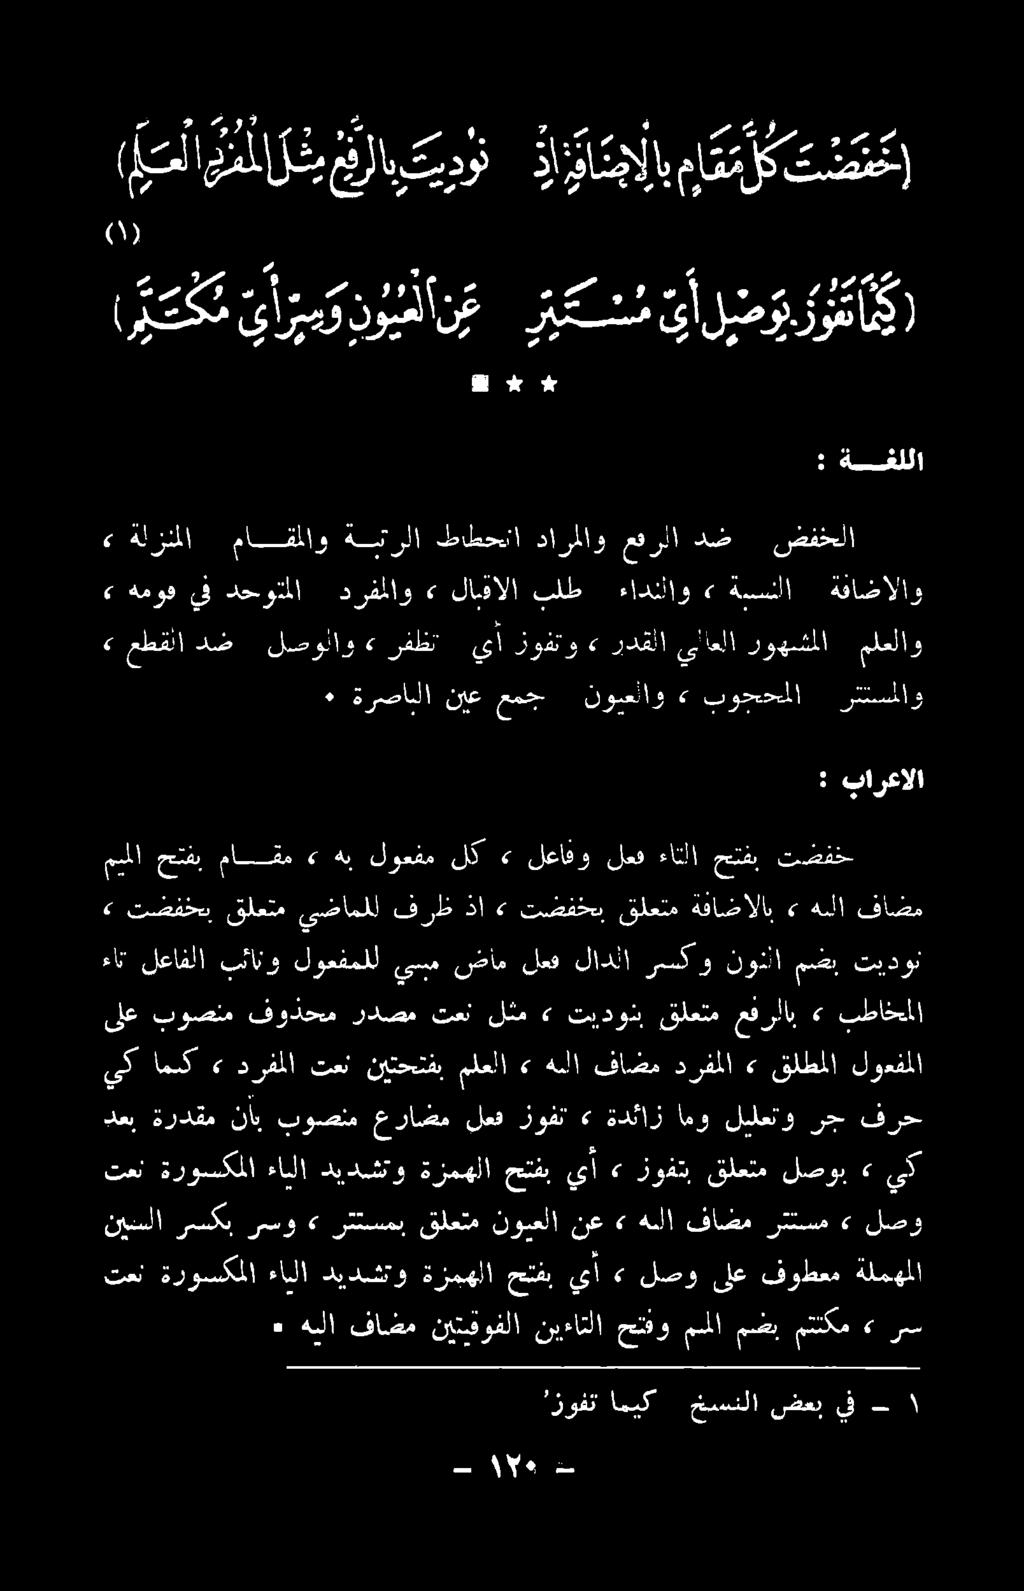 (خَفَضْتَ كُلَّ مَقَامٍ بِالْإِضَافَةِ إِذْ نُودِيتَ بِالرَّفْعِ مِثْلَ الْمُفْرَدِ الْعَلَمِ)
(١)
(كَيْمَا تَفُوزَ بِوَصْلٍ أَيِّ مُسْتَتِرٍ عَنِ الْعُيُونِ وَسِرٍّ أَيِّ مُكْتَتَمِ)
اللغـــة :
الخفض ضد الرفع والمراد انحطاط الرتبـة والمقـــام المنزلة ،
والاضافة النسبة ، والنداء طلب الاقبال ، والمفرد المتوحد في قومه ،
والعلم المشهور العالي القدر ، وتفوز أي تظفر ، والوصل ضد القطع ،
والمستتر المحجوب ، والعيون جمع عين الباصرة •
الاعراب :
خفضت بفتح التاء فعل وفاعل ، كل مفعول به ، مقـــام بفتح الميم
مضاف اليه ، بالاضافة متعلق بخفضت ، اذ ظرف للماضي متعلق بخفضت ،
نوديت بضم النون وكسر الدال فعل ماض مبني للمفعول ونائب الفاعل تاء
المخاطب ، بالرفع متعلق بنوديت ، مثل نعت مصدر محذوف منصوب على
المفعول المطلق ، المفرد مضاف اليه ، العلم بفتحتين نعت المفرد ، كيما كي
حرف جر وتعليل وما زائدة ، تفوز فعل مضارع منصوب بأن مقدرة بعد
كي ، بوصل متعلق بتفوز ، أي بفتح الهمزة وتشديد الياء المكسورة نعت
وصل ، مستتر مضاف اليه ، عن العيون متعلق بمستتر ، وسر بكسر السين
المهملة معطوف على وصل ، أي بفتح الهمزة وتشديد الياء المكسورة نعت
سر ، مكتتم بضم الميم وفتح التاءين الفوقيتين مضاف اليه •
١ – في بعض النسخ كيما تفوزُ
– ١٢٠ –